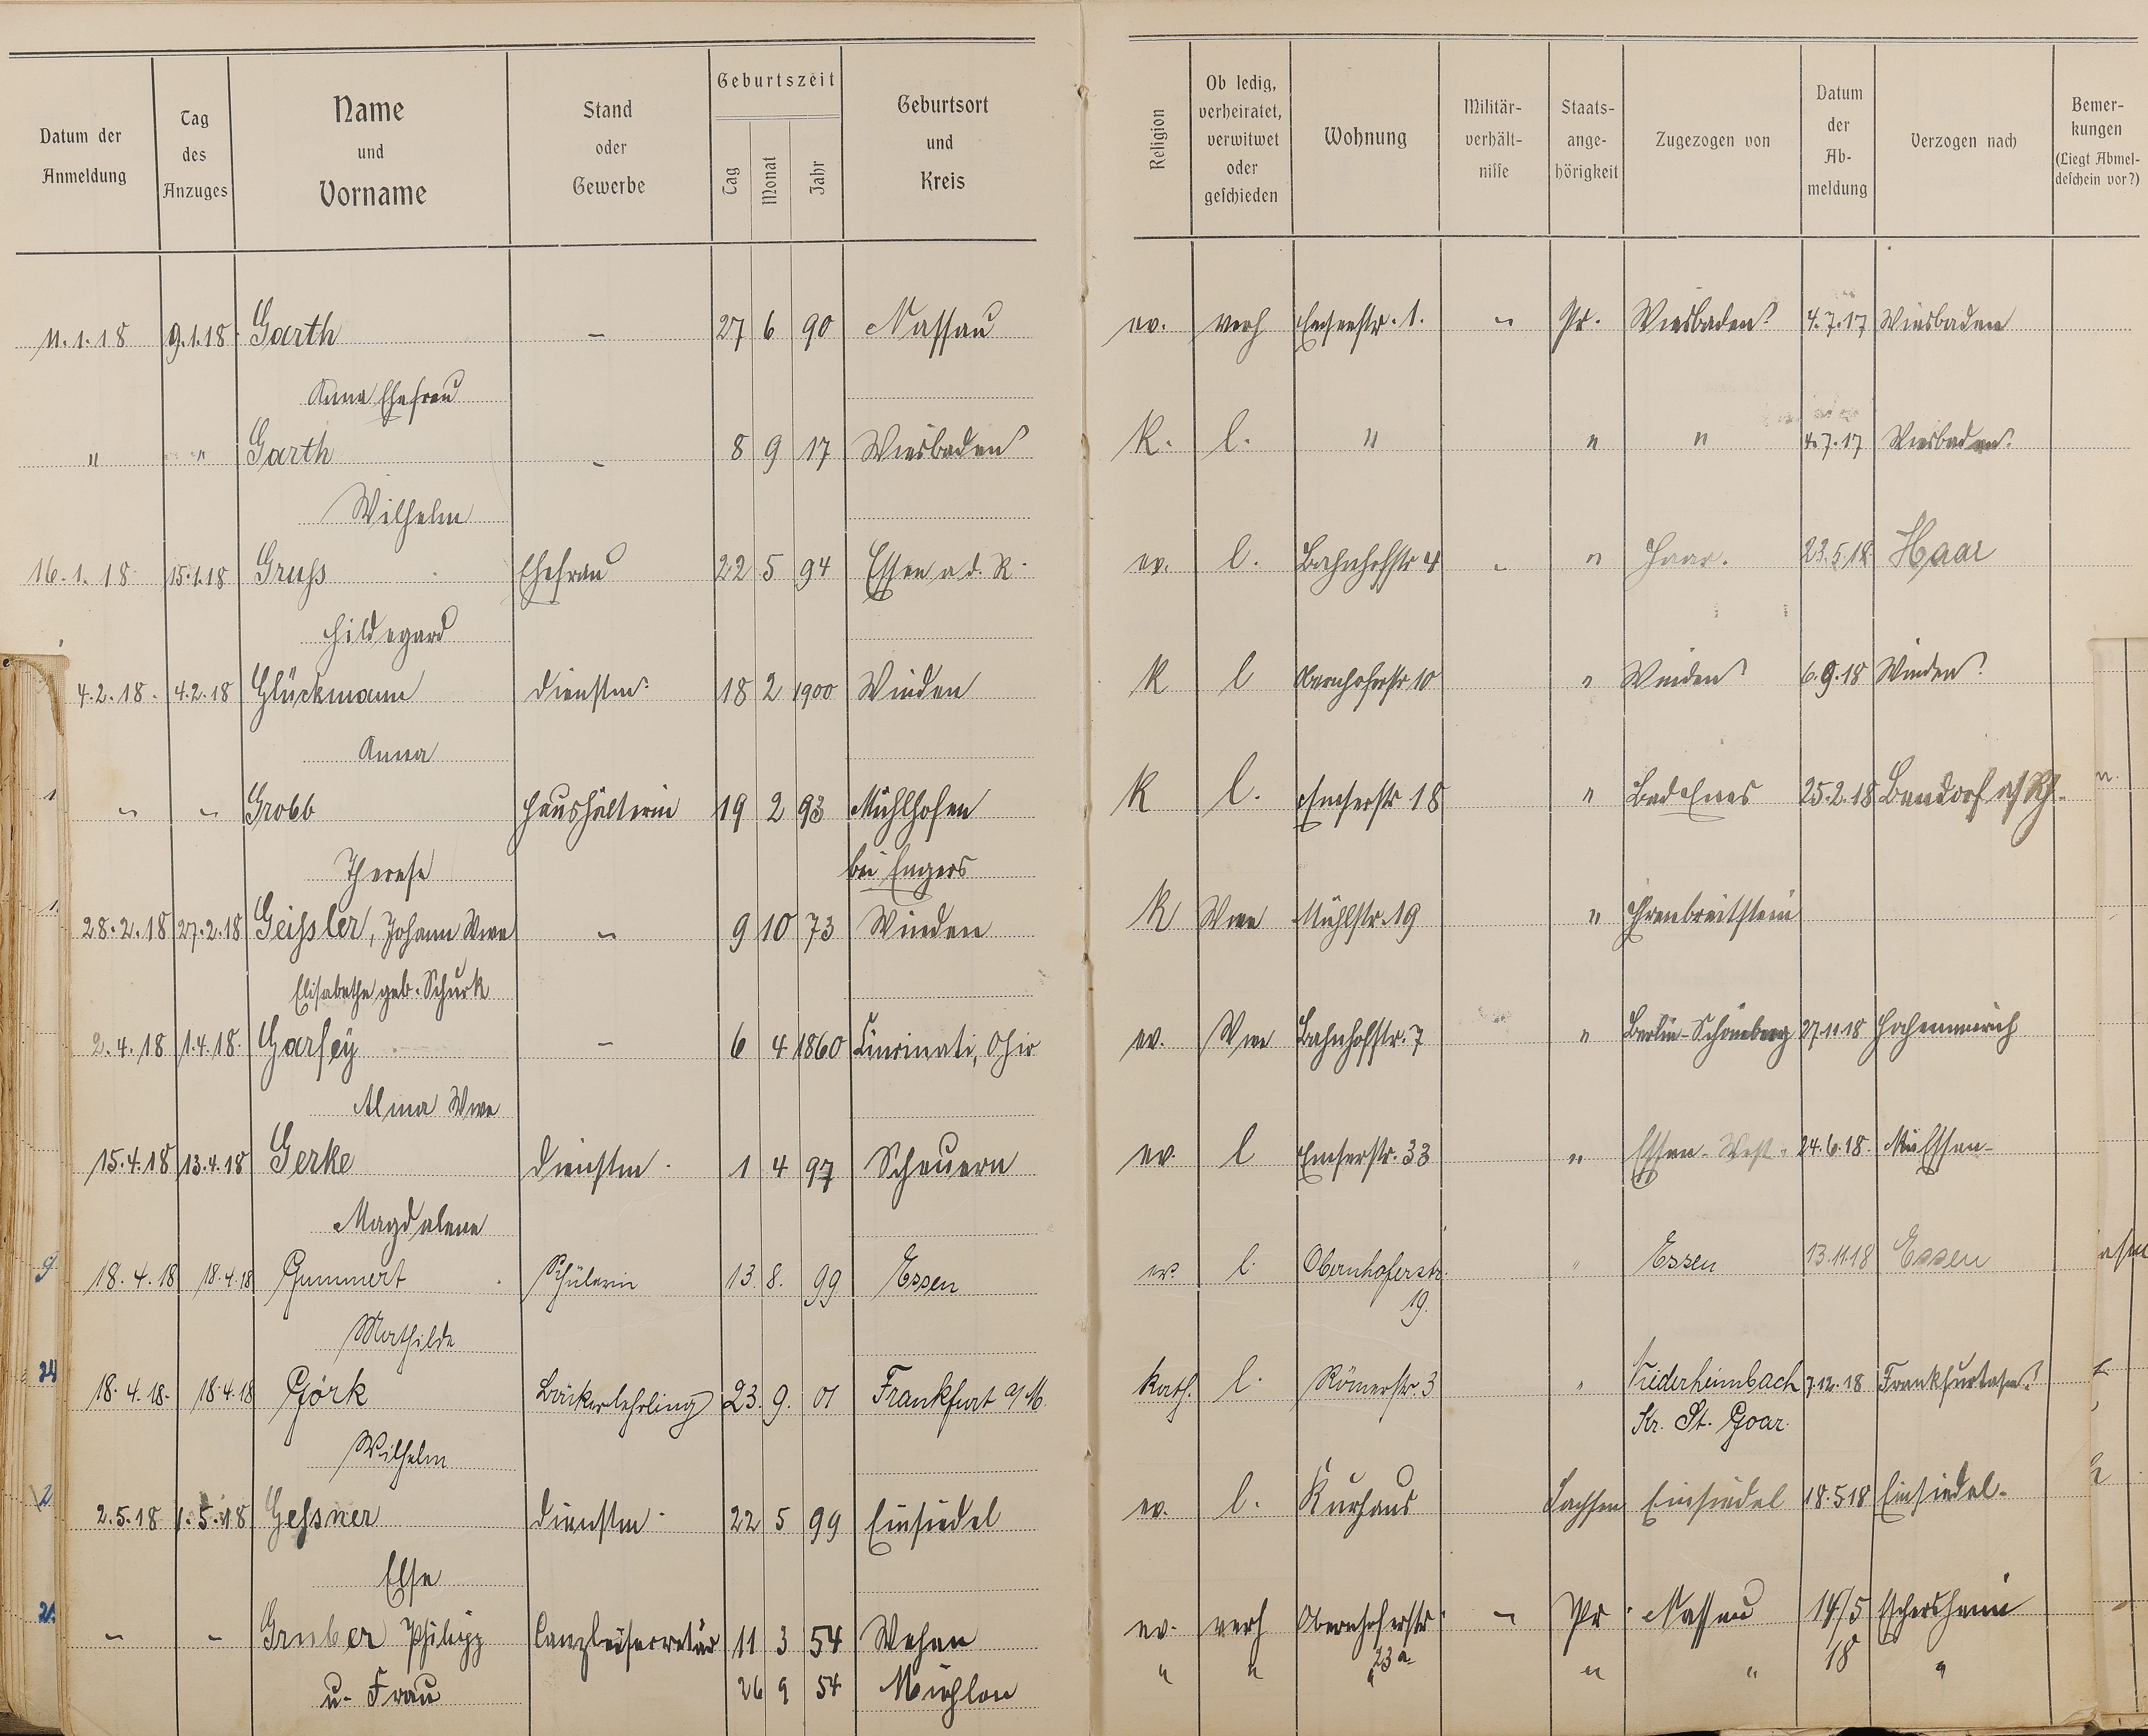 Datum der Anmeldung | Tag des Anzuges | Name und Vorname | Stand oder Gewerbe | Geburtszeit Tag Monat Jahr | Geburtsort und Kreis | Religion | Ob ledig, verheiratet, verwitwet oder geschieden | Wohnung | Militär-verhält-nisse | Staats-ange-hörigkeit | Zugezogen von | Datum der Ab-meldung | Verzogen nach | Bemer-kungen (Liegt Abmel-deschein vor?)
11.1.18 9.1.18 Garth – 27 6 90 Nassau ev. verh Emserstr. 1. " Pr. Wiesbaden 4.7.17 Wiesbaden
Anna Ehefrau
" " Garth – 8 9 17 Wiesbaden K. l. " " " 4.7.17 Wiesbaden
Wilhelm
16.1.18 15.1.18 Gruss Ehefrau 22 5 94 Essen a.d.R. ev. l. Bahnhofstr 4 " " Haar. 23.5.18 Haar
Hildegard
4.2.18. 4.2.18 Glückmann Dienstm. 18 2 1900 Winden K l Obernhoferstr 10 " Winden 6.9.18 Winden
Anna
" " Grobb Haushälterin 19 2 93 Mühlhofen K l. Emserstr 18 " Bad Ems 25.2.18 Bendorf a/Rh.
Therese bei Engers
28.2.18 27.2.18 Geissler, Johann Wwe – 9 10 73 Winden K Wwe Mühlstr. 19 " Ehrenbreitstein
Elisabethe geb. Schurk
2.4.18 1.4.18. Garfey – 6 4 1860 Cincinati, Ohio ev. Wwe Bahnhofstr. 7 " Berlin-Schöneberg 27.11.18
Alma Wwe
15.4.18 13.4.18 Gerke Dienstm. 1 4 97 Scheuern ev. l Emserstr. 33 " Essen-West. 24.6.18. Essen
Magdalene
18.4.18 18.4.18 Gummert Schülerin 13. 8. 99 Essen ev. l. Obernhoferstr. " Essen 13.11.18 Essen
Mathilde 19.
18.4.18. 18.4.18 Görk Bäckerlehrling 23. 9. 01 Frankfurt a/M. Kath. l. Römerstr. 3 " Niederheimbach 7.12.18 Frankfurt a/m
Wilhelm Kr. St. Goar.
2.5.18 1.5.18 Gessner Dienstm. 22 5 99 Einsiedel ev. l. Kurhaus Sachsen Einsiedel 18.5.18 Einsiedel.
Else
" " Gruber Philipp Canzleisecretär 11 3 54 Wehen ev. verh Obernhoferstr. " Pr. Nassau 14/5 Eschersheim
23a 18
u. Frau 26 9 54 " " " " " "